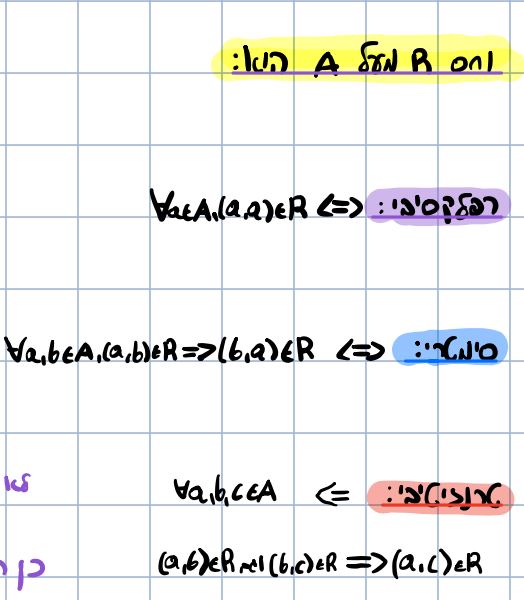 יחס R מעל A הוא:
רפלקסיבי: <=> ∀a∈A,(a,a)∈R
סימטרי: <=> ∀a,b∈A,(a,b)∈R=>(b,a)∈R
טרנזיטיבי: <= ∀a,b,c∈A
(a,b)∈R וגם (b,c)∈R =>(a,c)∈R